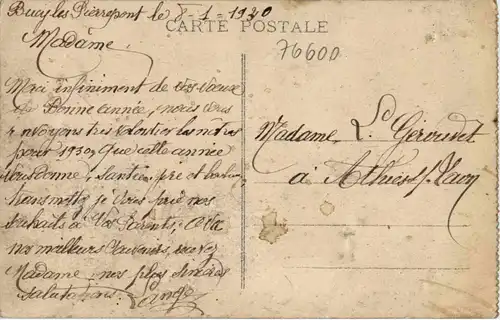 Bucy les Pierrepont le 8-1-1930
CARTE POSTALE
76600
Madame,
Merci infiniment de vos vœux
de Bonne année, nous vous
renvoyons très volontier les nôtres
pour 1930, que cette année
vous donne, Santée, joie et bonheur
transmettez je vous prie nos
souhaits à Vos Parents,
nos meilleurs recevez
Madame, nos plus sincères
salutations.
Madame L. Gérondet
à Athies s/s Laon